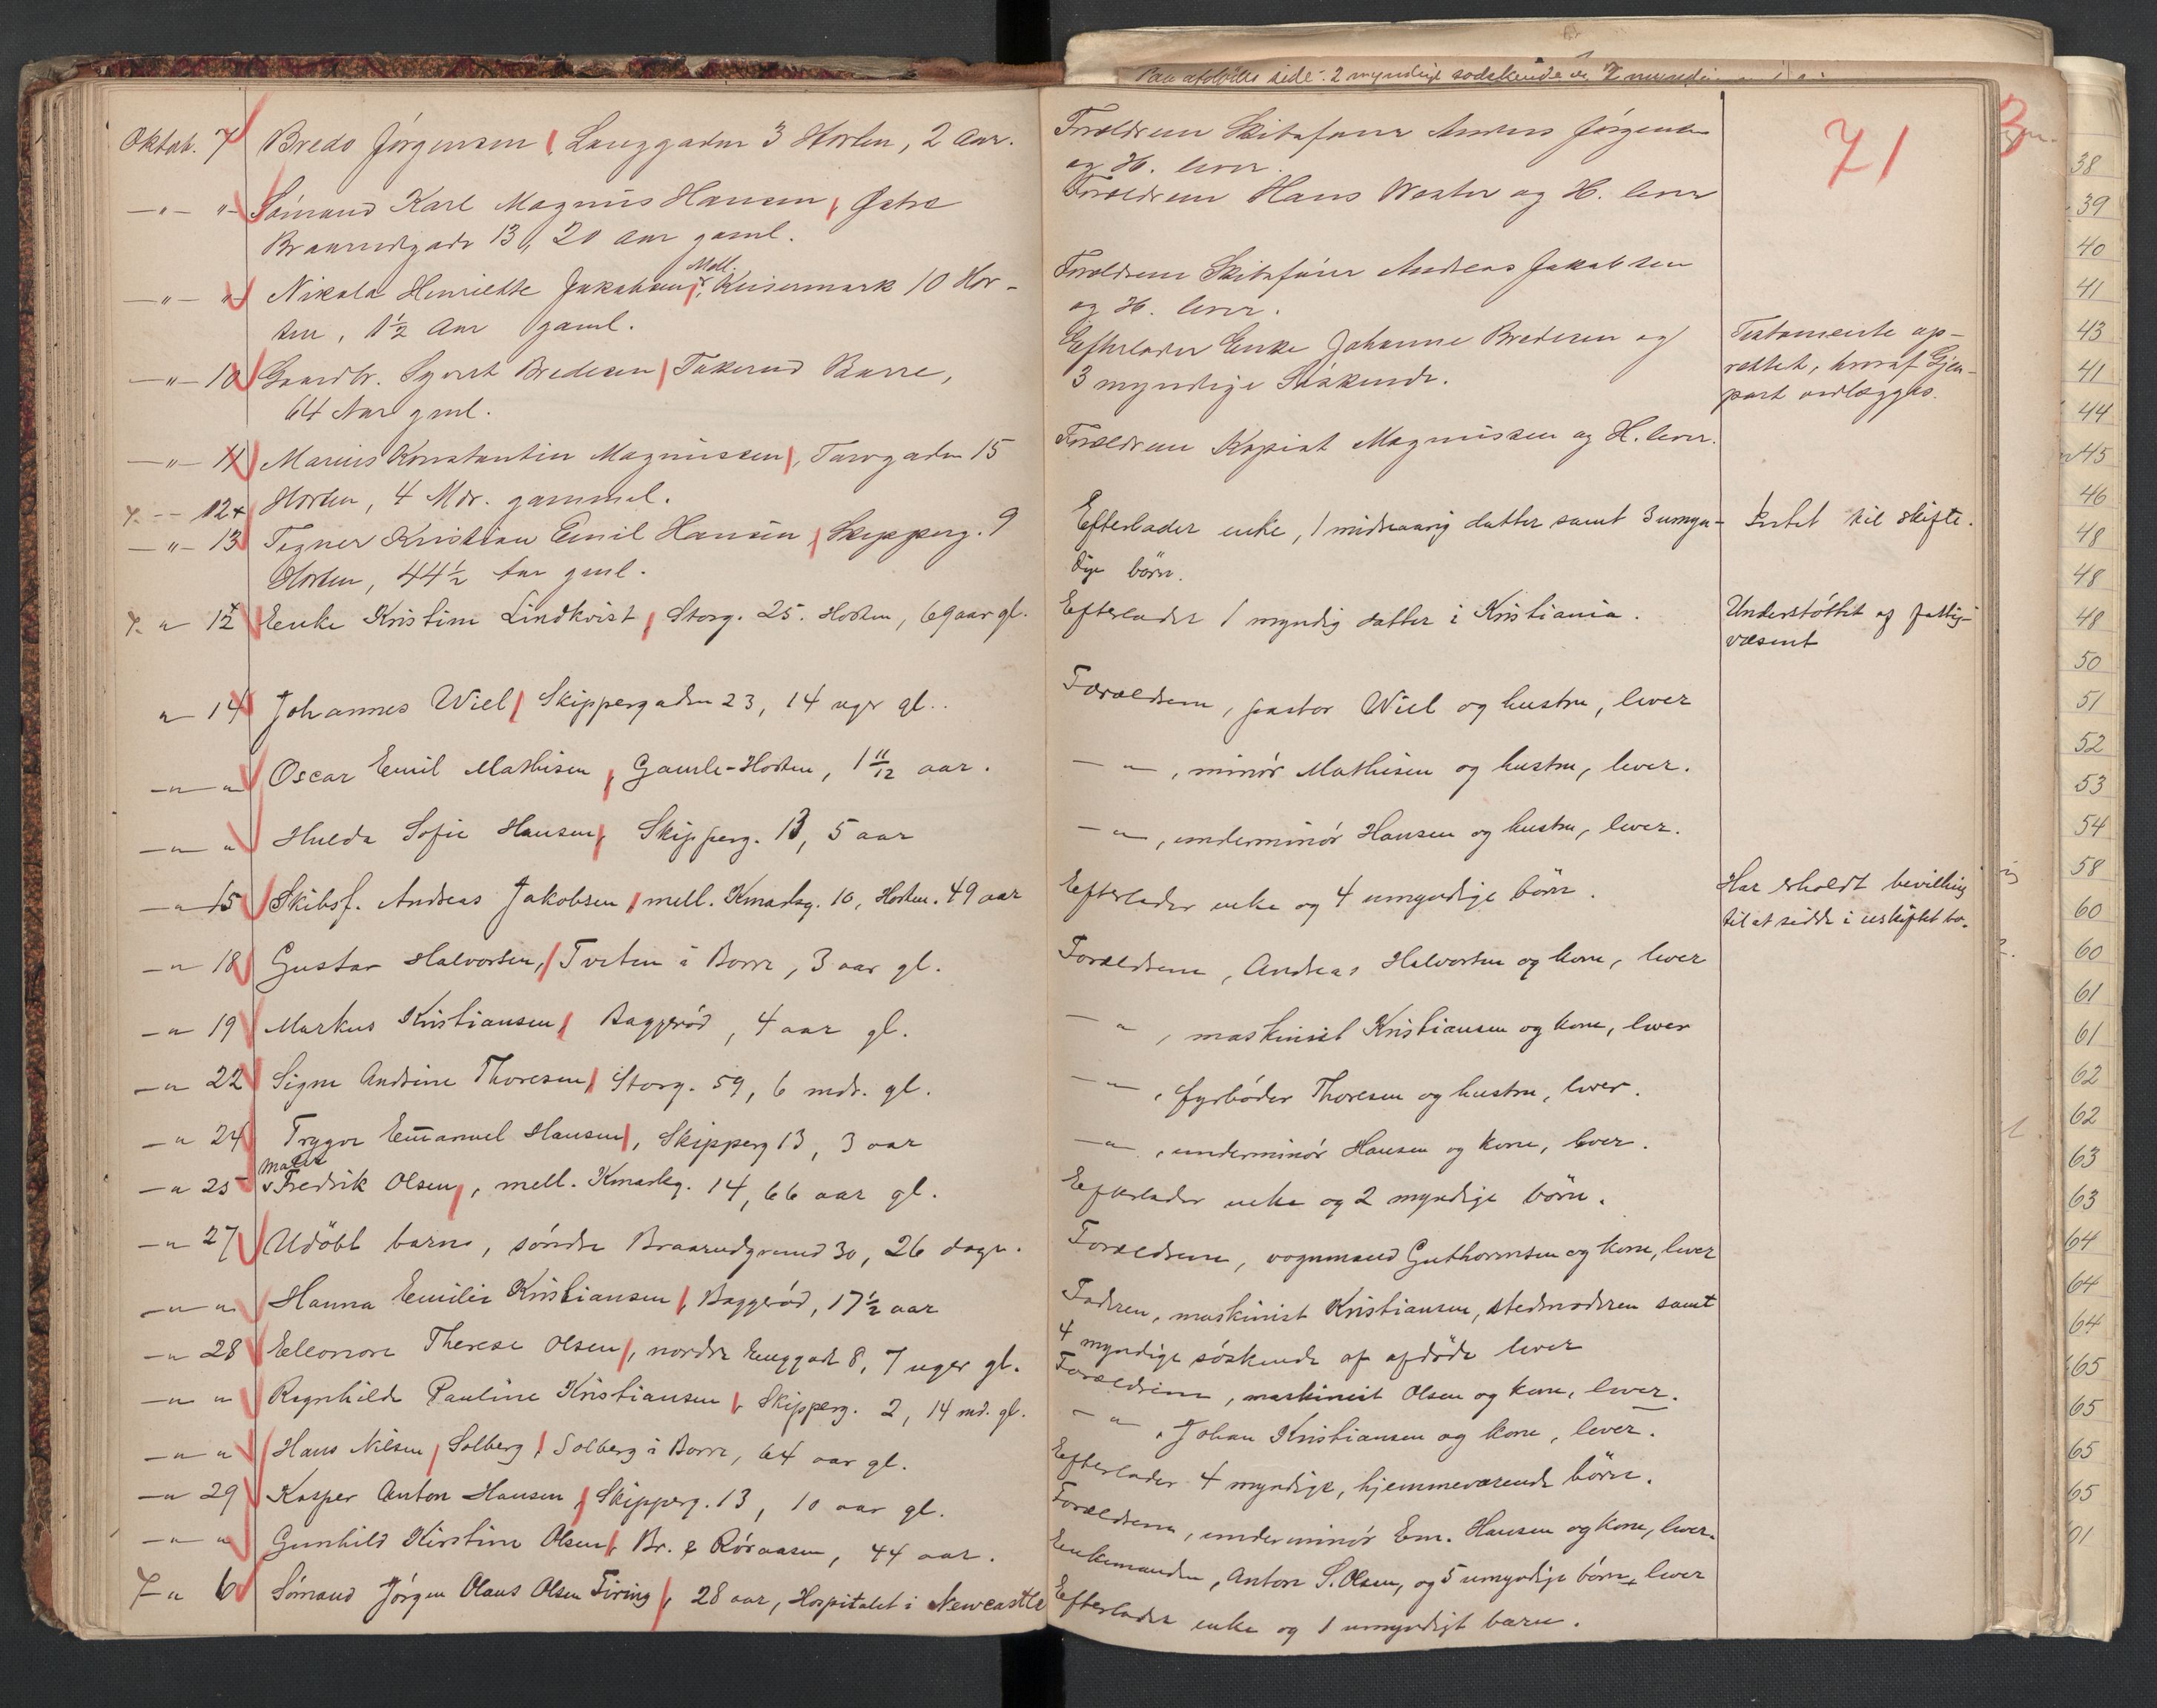 71
Oktob. 7 Bredo Jørgensen, Langgaden 3 Horten, 2 Aar.
Forældrene Skibsfører Anders Jørgensen
og H. lever.
—"— "— Sømand Karl Magnus Hansen, Østre
Braarudgade 13, 20 Aar gaml.
Forældrene Hans Wester og H. lever
—"— "— Nikola Henriette Jakobsen, Mell. Keisermark 10 Hor-
ten, 1½ Aar gaml.
Forældrene Skibsfører Andreas Jakobsen
og H. lever.
—"— 10 Gaardbr. Syvert Bredesen, Takerud Borre,
64 Aar gml.
Efterlader Enke Johanne Bredesen og
3 myndige Søskende.
Testamente op-
rettet, hvoraf Gjen-
part vedlægges.
—"— 11 Marius Konstantin Magnussen, Torvgaden 15
Horten, 4 Mdr. gammel.
Forældrene Kopist Magnussen og H. lever.
7. -- 12+
—"— 13 Tegner Kristian Emil Hansen, Skipperg. 9
Horten, 44½ Aar gml.
Efterlader enke, 1 mindreaarig datter samt 3 umyn-
dige børn.
Intet til skifte.
7. " 12 Enke Kristine Lindkvist, Storg. 25. Horten, 69 aar gl.
Efterlader 1 myndig datter i Kristiania.
Understøttet af fattig-
væsent
" 14 Johannes Wiel, Skippergaden 23, 14 uger gl..
Forældrene, pastor Wiel og hustru, lever
—"— " Oscar Emil Mathisen, Gamle-Horten, 1 11/12 aar.
—"—, minør Mathisen og hustru, lever.
—"— " Hulda Sofie Hansen, Skipperg. 13, 5 aar
—"—, underminør Hansen og hustru, lever.
—"— 15 Skibsf. Andreas Jakobsen, mell. Kmarkg. 10, Horten. 49 aar
Efterlader enke og 4 umyndige børn.
Har erholdt bevilling
til at sidde i uskiftet bo.
—" 18 Gustav Halvorsen, Tveten i Borre, 3 aar gl.
Forældrene, Andreas Halvorsen og kone, lever
—" 19 Markus Kristiansen, Baggerød, 4 aar gl.
—"—, maskinist Kristiansen og kone, lever
—" 22 Signe Andrine Thoresen, Storg. 59, 6 mdr. gl.
—"—, fyrbøder Thoresen og hustru, lever.
—" 24 Trygve Emanuel Hansen, Skipperg 13, 3 aar
—"—, underminør Hansen og kone, lever.
—" 25 Maler Fredrik Olsen, mell. Kmarkg. 14, 66 aar gl.
Efterlader enke og 2 myndige børn.
—" 27 Udøbt barn, søndre Braarudgrund 30, 26 dage.
Forældrene, vognmand Guthormsen og kone, lever
—"— " Hanna Emilie Kristiansen, Baggerød, 17½ aar
Faderen, maskinist Kristiansen, stedmoderen samt
4 myndige søskende af afdøde lever
—" 28 Eleonore Therese Olsen, nordre Enggade 8, 7 uger gl.
Forældrene, maskinist Olsen og kone, lever.
—"— " Ragnhild Pauline Kristiansen, Skipperg. 2, 14 md. gl.
—"—, Johan Kristiansen og kone, lever.
—"— " Hans Nilsen, Solberg, Solberg i Borre, 64 aar gl.
Efterlader 4 myndige, hjemmeværende børn.
—" 29 Kasper Anton Hansen, Skipperg. 13, 10 aar gl.
Forældrene, underminør Em. Hansen og kone, lever.
—"— " Gunhild Kirstine Olsen, Br. & Røraasen, 44 aar.
Enkemanden, Anton S. Olsen, og 5 umyndige børn lever
7- " 6 Sømand Jørgen Olaus Olsen Firing, 28 aar, Hospitalet i Newcastle
Efterlader enke og 1 umyndigt barn.
38
39
40
41
43
41
44
45
46
48
48
48
50
51
52
53
54
58
60
60
61
61
62
62
63
63
64
64
64
65
65
65
65